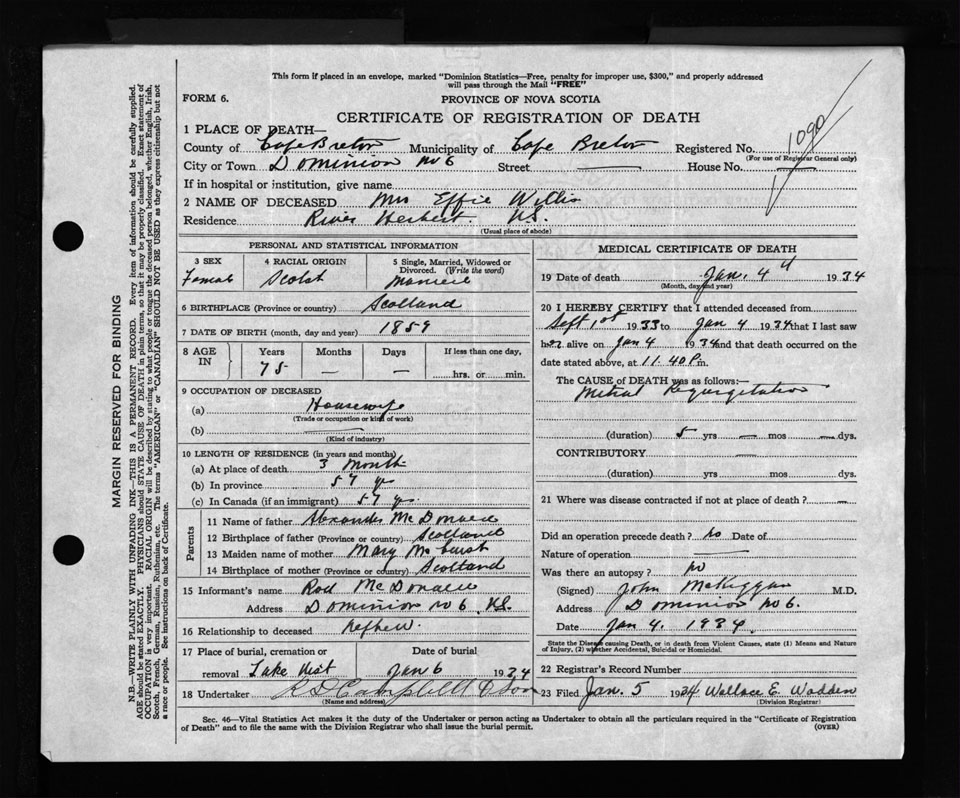 This form if placed in an envelope, marked "Dominion Statistics—Free, penalty for improper use, $300," and properly addressed
will pass through the Mail "FREE"
FORM 6.
PROVINCE OF NOVA SCOTIA
CERTIFICATE OF REGISTRATION OF DEATH
1 PLACE OF DEATH—
County of Cape Breton Municipality of Cape Breton Registered No. 1090
(For use of Registrar General only)
City or Town Dominion No 6 Street — House No. —
If in hospital or institution, give name
2 NAME OF DECEASED Mrs Effie Willis
Residence River Herbert. N.S.
(Usual place of abode)
PERSONAL AND STATISTICAL INFORMATION
3 SEX 4 RACIAL ORIGIN 5 Single, Married, Widowed or
Divorced. (Write the word)
Female Scotch Married
6 BIRTHPLACE (Province or country) Scotland
7 DATE OF BIRTH (month, day and year) 1859
8 AGE IN Years Months Days If less than one day,
75 — — hrs. or min.
9 OCCUPATION OF DECEASED
(a) Housewife
(Trade or occupation or kind of work)
(b) —
(Kind of industry)
10 LENGTH OF RESIDENCE (in years and months)
(a) At place of death 3 Month
(b) In province 57 yrs
(c) In Canada (if an immigrant) 57 yrs.
Parents
11 Name of father Alexander McDonald
12 Birthplace of father (Province or country) Scotland
13 Maiden name of mother Mary
14 Birthplace of mother (Province or country) Scotland
15 Informant's name Rod McDonald
Address Dominion No 6, N.S.
16 Relationship to deceased Nephew.
17 Place of burial, cremation or Date of burial
removal Lake Jan 6 1934
18 Undertaker Campbell & Son
(Name and address)
MEDICAL CERTIFICATE OF DEATH
19 Date of death Jan. 4 1934
(Month, day and year)
20 I HEREBY CERTIFY that I attended deceased from
Sept 1st 1933 to Jan 4 1934 that I last saw
her alive on Jan 4 1934 and that death occurred on the
date stated above, at 11.40 P.m.
The CAUSE OF DEATH was as follows:—
Mitral Regurgitation
(duration) 5 yrs — mos — dys.
CONTRIBUTORY —
(duration) yrs. mos. dys.
21 Where was disease contracted if not at place of death? —
Did an operation precede death? No Date of
Nature of operation —
Was there an autopsy? No
(Signed) John McKiggan M.D.
Address Dominion No 6.
Date Jan 4. 1934.
State the Disease causing Death, or in death from Violent Causes, state (1) Means and Nature
of Injury, (2) whether Accidental, Suicidal or Homicidal.
22 Registrar's Record Number
23 Filed Jan. 5 1934 Wallace E. Wadden
(Division Registrar)
Sec. 46—Vital Statistics Act makes it the duty of the Undertaker or person acting as Undertaker to obtain all the particulars required in the "Certificate of Registration
of Death" and to file the same with the Division Registrar who shall issue the burial permit.
(OVER)
MARGIN RESERVED FOR BINDING
N.B.—WRITE PLAINLY WITH UNFADING INK—THIS IS A PERMANENT RECORD. Every item of information should be carefully supplied.
AGE should be stated EXACTLY. PHYSICIANS should STATE CAUSE OF DEATH in plain terms, so that it may be properly classified. Exact statement of
OCCUPATION is very important. RACIAL ORIGIN will be described by stating to what people or tongue the deceased person belonged, whether English, Irish,
Scotch, French, German, Russian, Ruthenian, etc. The terms "AMERICAN" or "CANADIAN" SHOULD NOT BE USED as they express citizenship but not
a race or people. See instructions on back of Certificate.